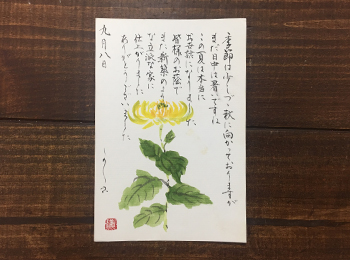 季節は少しづつ秋に向かっておりますが
まだ日中は暑いですね
この夏は本当に
お世話になりました
皆様のお蔭で
また新築のような
立派な家に
仕上がりました
ありがとうございました
九月八日